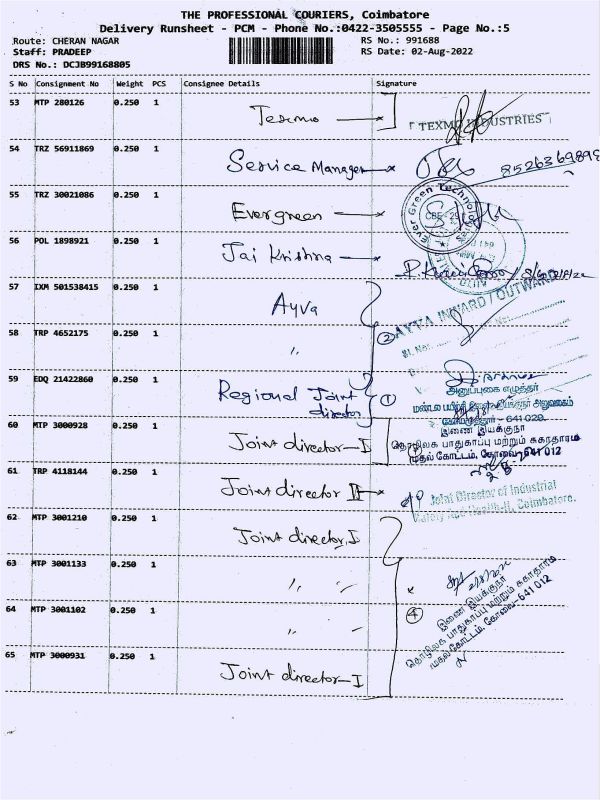 THE PROFESSIONAL COURIERS, Coimbatore
Delivery Runsheet - PCM - Phone No.:0422-3505555 - Page No.:5
Route: CHERAN NAGAR RS No.: 991688
Staff: PRADEEP RS Date: 02-Aug-2022
DRS No.: DCJB99168805
S No Consignment No Weight PCS Consignee Details Signature
53 MTP 280126 0.250 1 Texmo
TEXMO INDUSTRIES
54 TRZ 56911869 0.250 1 Service Manager 8526369898
55 TRZ 30021086 0.250 1 Evergreen
Ever Green Technologies
CBE - 29
56 POL 1898921 0.250 1 Jai Krishna
57 IXM 501538415 0.250 1 Ayva
AYVA INWARD / OUTWARD
58 TRP 4652175 0.250 1 "
2
Sl. No.
59 EDQ 21422860 0.250 1 Regional Joint director
1
அனுப்புகை எழுத்தர்
60 MTP 3000928 0.250 1 Joint director-I
இணை இயக்குநர்
தொழிலக பாதுகாப்பு மற்றும் சுகாதாரம்
முதல் கோட்டம், கோவை-641 012
61 TRP 4118144 0.250 1 Joint director II
Joint Director of Industrial
Safety And Health-II, Coimbatore.
62 MTP 3001210 0.250 1 Joint director, I
63 MTP 3001133 0.250 1 " "
64 MTP 3001102 0.250 1 " "
4
இணை இயக்குநர்
தொழிலக பாதுகாப்பு மற்றும் சுகாதாரம்
முதல் கோட்டம், கோவை-641 012
65 MTP 3000931 0.250 1 Joint director-I